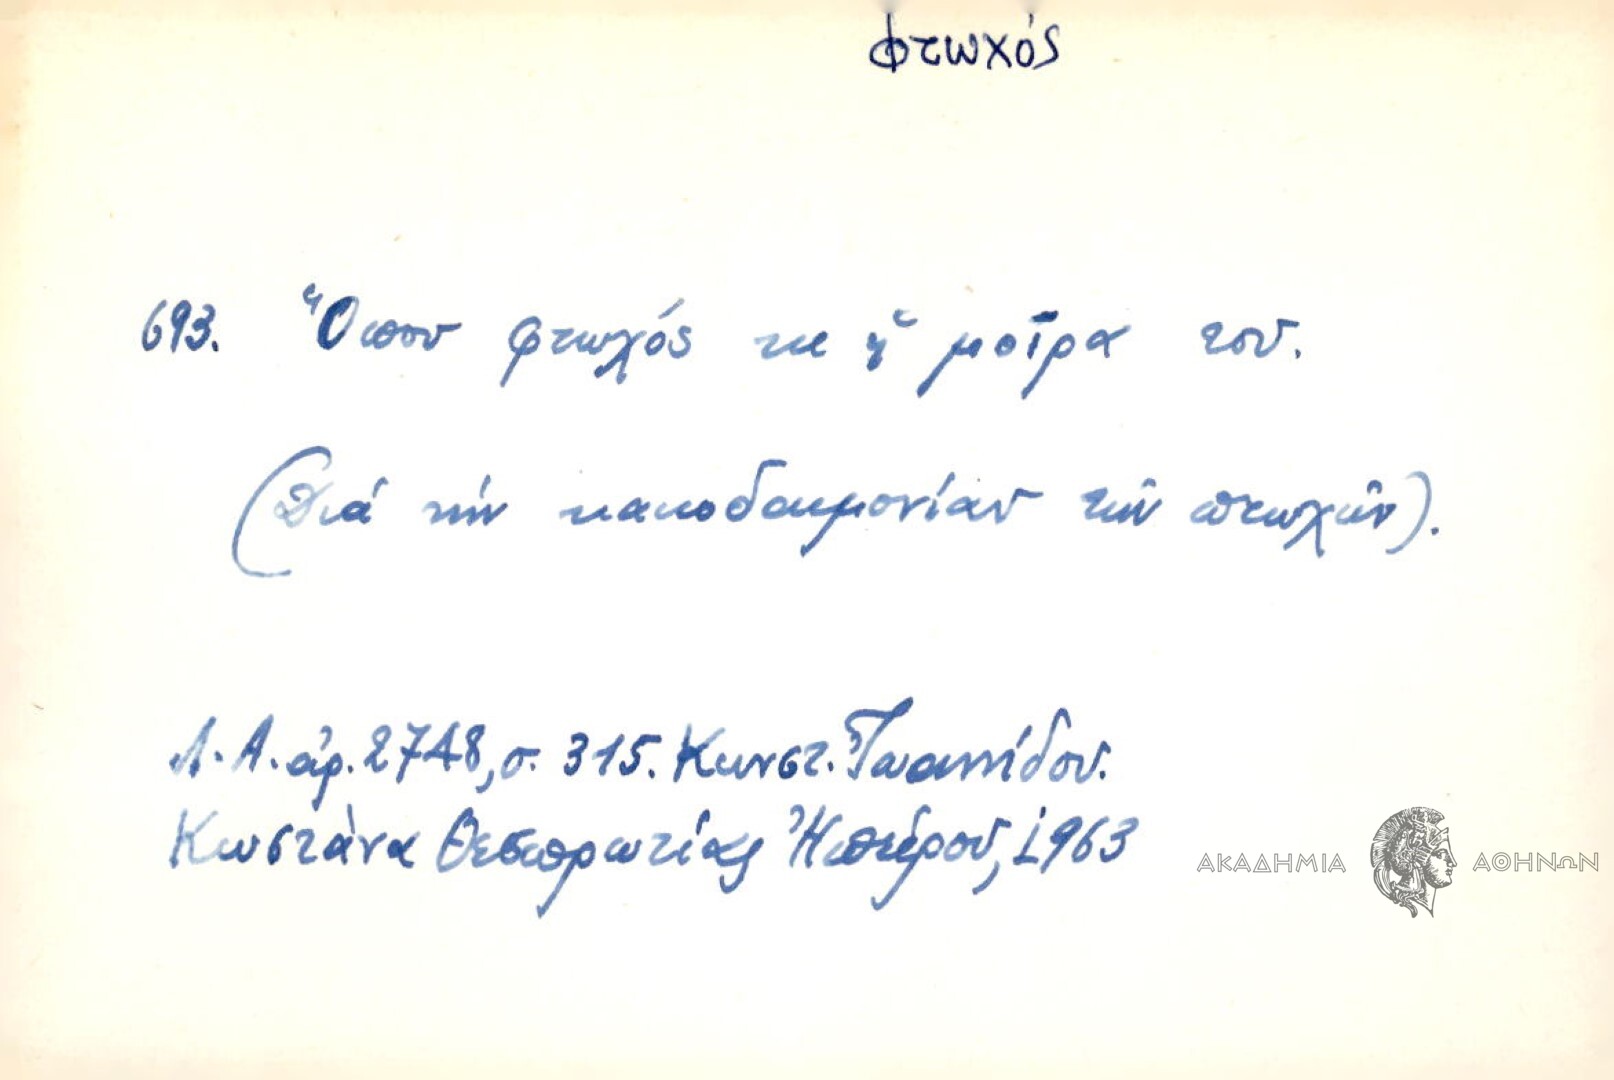 φτωχός
693. Ὅπου φτωχός κι ἡ μοῖρα του.
(Διά τήν κακοδαιμονίαν τῶν πτωχῶν).
Λ.Α. ἀρ. 2748, σ. 315. Κωνστ. Ἰωαννίδου.
Κωστάνα Θεσπρωτίας Ἠπείρου, 1963
ΑΚΑΔΗΜΙΑ ΑΘΗΝΩΝ